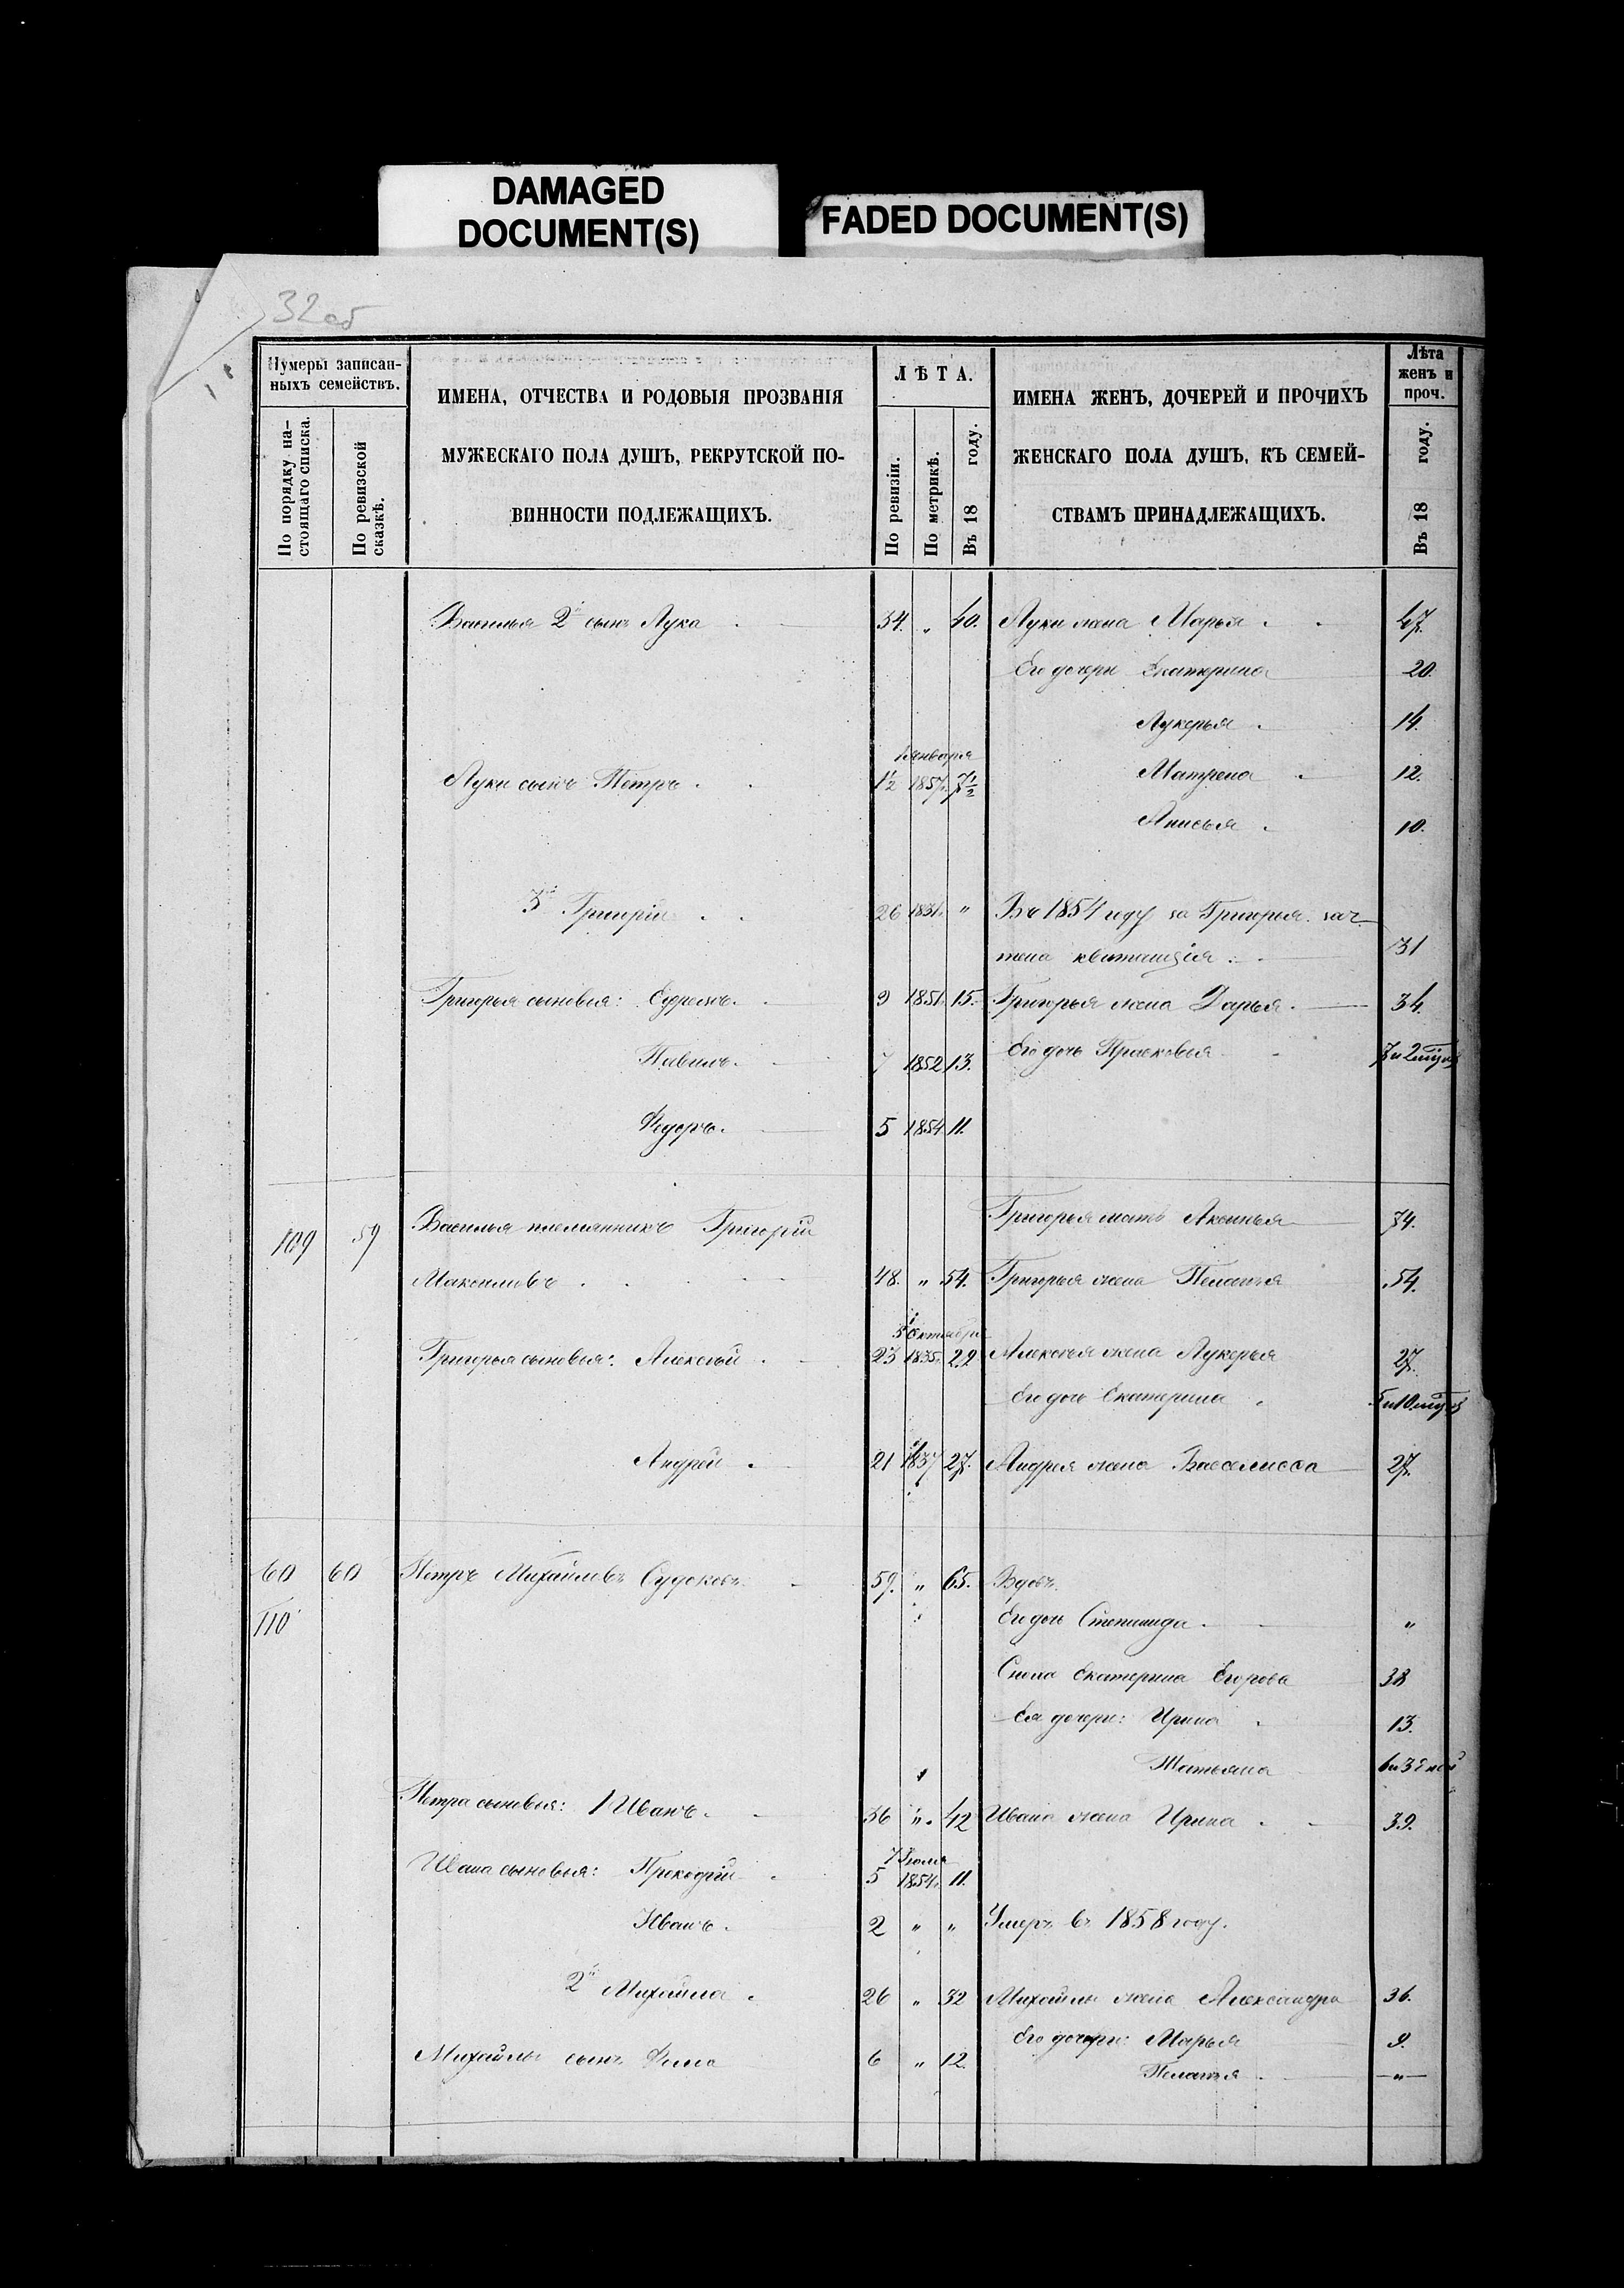 DAMAGED
DOCUMENT(S)
FADED DOCUMENT(S)
32об
Нумеры записан-
ныхъ семействъ.
По порядку на-
стоящаго списка.
По ревизской
сказкѣ.
ИМЕНА, ОТЧЕСТВА И РОДОВЫЯ ПРОЗВАНІЯ
МУЖЕСКАГО ПОЛА ДУШЪ, РЕКРУТСКОЙ ПО-
ВИННОСТИ ПОДЛЕЖАЩИХЪ.
ЛѢТА.
По ревизіи.
По метрикѣ.
Въ 18 году.
ИМЕНА ЖЕНЪ, ДОЧЕРЕЙ И ПРОЧИХЪ
ЖЕНСКАГО ПОЛА ДУШЪ, КЪ СЕМЕЙ-
СТВАМЪ ПРИНАДЛЕЖАЩИХЪ.
Лѣта
женъ и
проч.
Въ 18 году.
Василья 2й сынъ Лука 34. " 40. Луки жена Марья 47.
Его дочери Екатерина 20.
Лукерья 14.
1 января
Луки сынъ Петръ 1½ 1857. 7½ Матрена 12.
Анисья 10.
3й Григорій 26 1831. " Въ 1854 году за Григорья зач-
тена квитанція 31
Григорья сыновья: Ефремъ. 9 1851. 15. Григорья жена Дарья. 34.
Павелъ. 7 1852 13. Его дочь Прасковья 7 и 2
Федоръ. 5 1854 11.
109 59 Василья племянникъ Григорій Григорья мать Аксинья 74.
Максимовъ 48. " 54. Григорья жена Пелагья 54.
5 Октября
Григорья сыновья: Алексѣй 23 1835. 29 Алексѣя жена Лукерья 27.
Его дочь Екатерина 5 и 10
Андрей 21 1837 27. Андрея жена Васелисса 27.
60 60 Петръ Михайловъ Судоковъ. 59. " 65. Вдовъ.
110 Его дочь Степанида. "
Сноха Екатерина Егорова 38
Ея дочери: Ирина 13.
Татьяна
Петра сыновья: 1 Иванъ. 36 " 42 Ивана жена Ирина 39.
7 Іюля
Ивана сыновья: Прокофій 5 1854. 11.
Иванъ. 2 " " Умеръ въ 1858 году.
2й Михайла 26 " 32 Михайлы жена Александра 36.
Его дочери: Марья 9.
Михайлы сынъ Фома 6 " 12.
Пелагья "